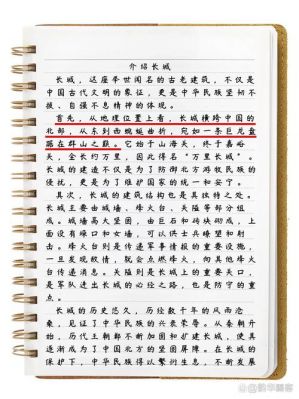 介绍长城
长城，这座举世闻名的古老建筑，不仅是
中国古代文明的象征，更是中华民族坚韧不
拔、自强不息精神的体现。
首先，从地理位置上看，长城横跨中国的
北部，从东到西蜿蜒曲折，宛如一条巨龙盘
踞在群山之巅。它始于山海关，终于嘉峪
关，全长约万里，因此得名“万里长城”。
长城的建造不仅是为了防御北方游牧民族的
侵扰，更是为了维护国家的统一和安宁。
其次，长城的建筑结构也是其独特之处。
长城主要由城墙、烽火台、关隘等部分组
成。城墙高大坚固，由巨石和砖块砌成，上
面设有垛口和女墙，可以供士兵瞭望和射
击。烽火台则是传递军事情报的重要设施，
一旦发现敌情，就会点燃烽火，向其他烽火
台传递消息。关隘则是长城上的重要关口，
是军队进出长城的必经之路，也是防守的重
点。
长城的历史悠久，历经数千年的风雨沧
桑，见证了中华民族的兴衰荣辱。从秦朝开
始，历代王朝都不断加固和扩建长城，使其
逐渐成为了中国北方的坚固屏障。在长城的
保护下，中华民族得以繁衍生息，不断发展